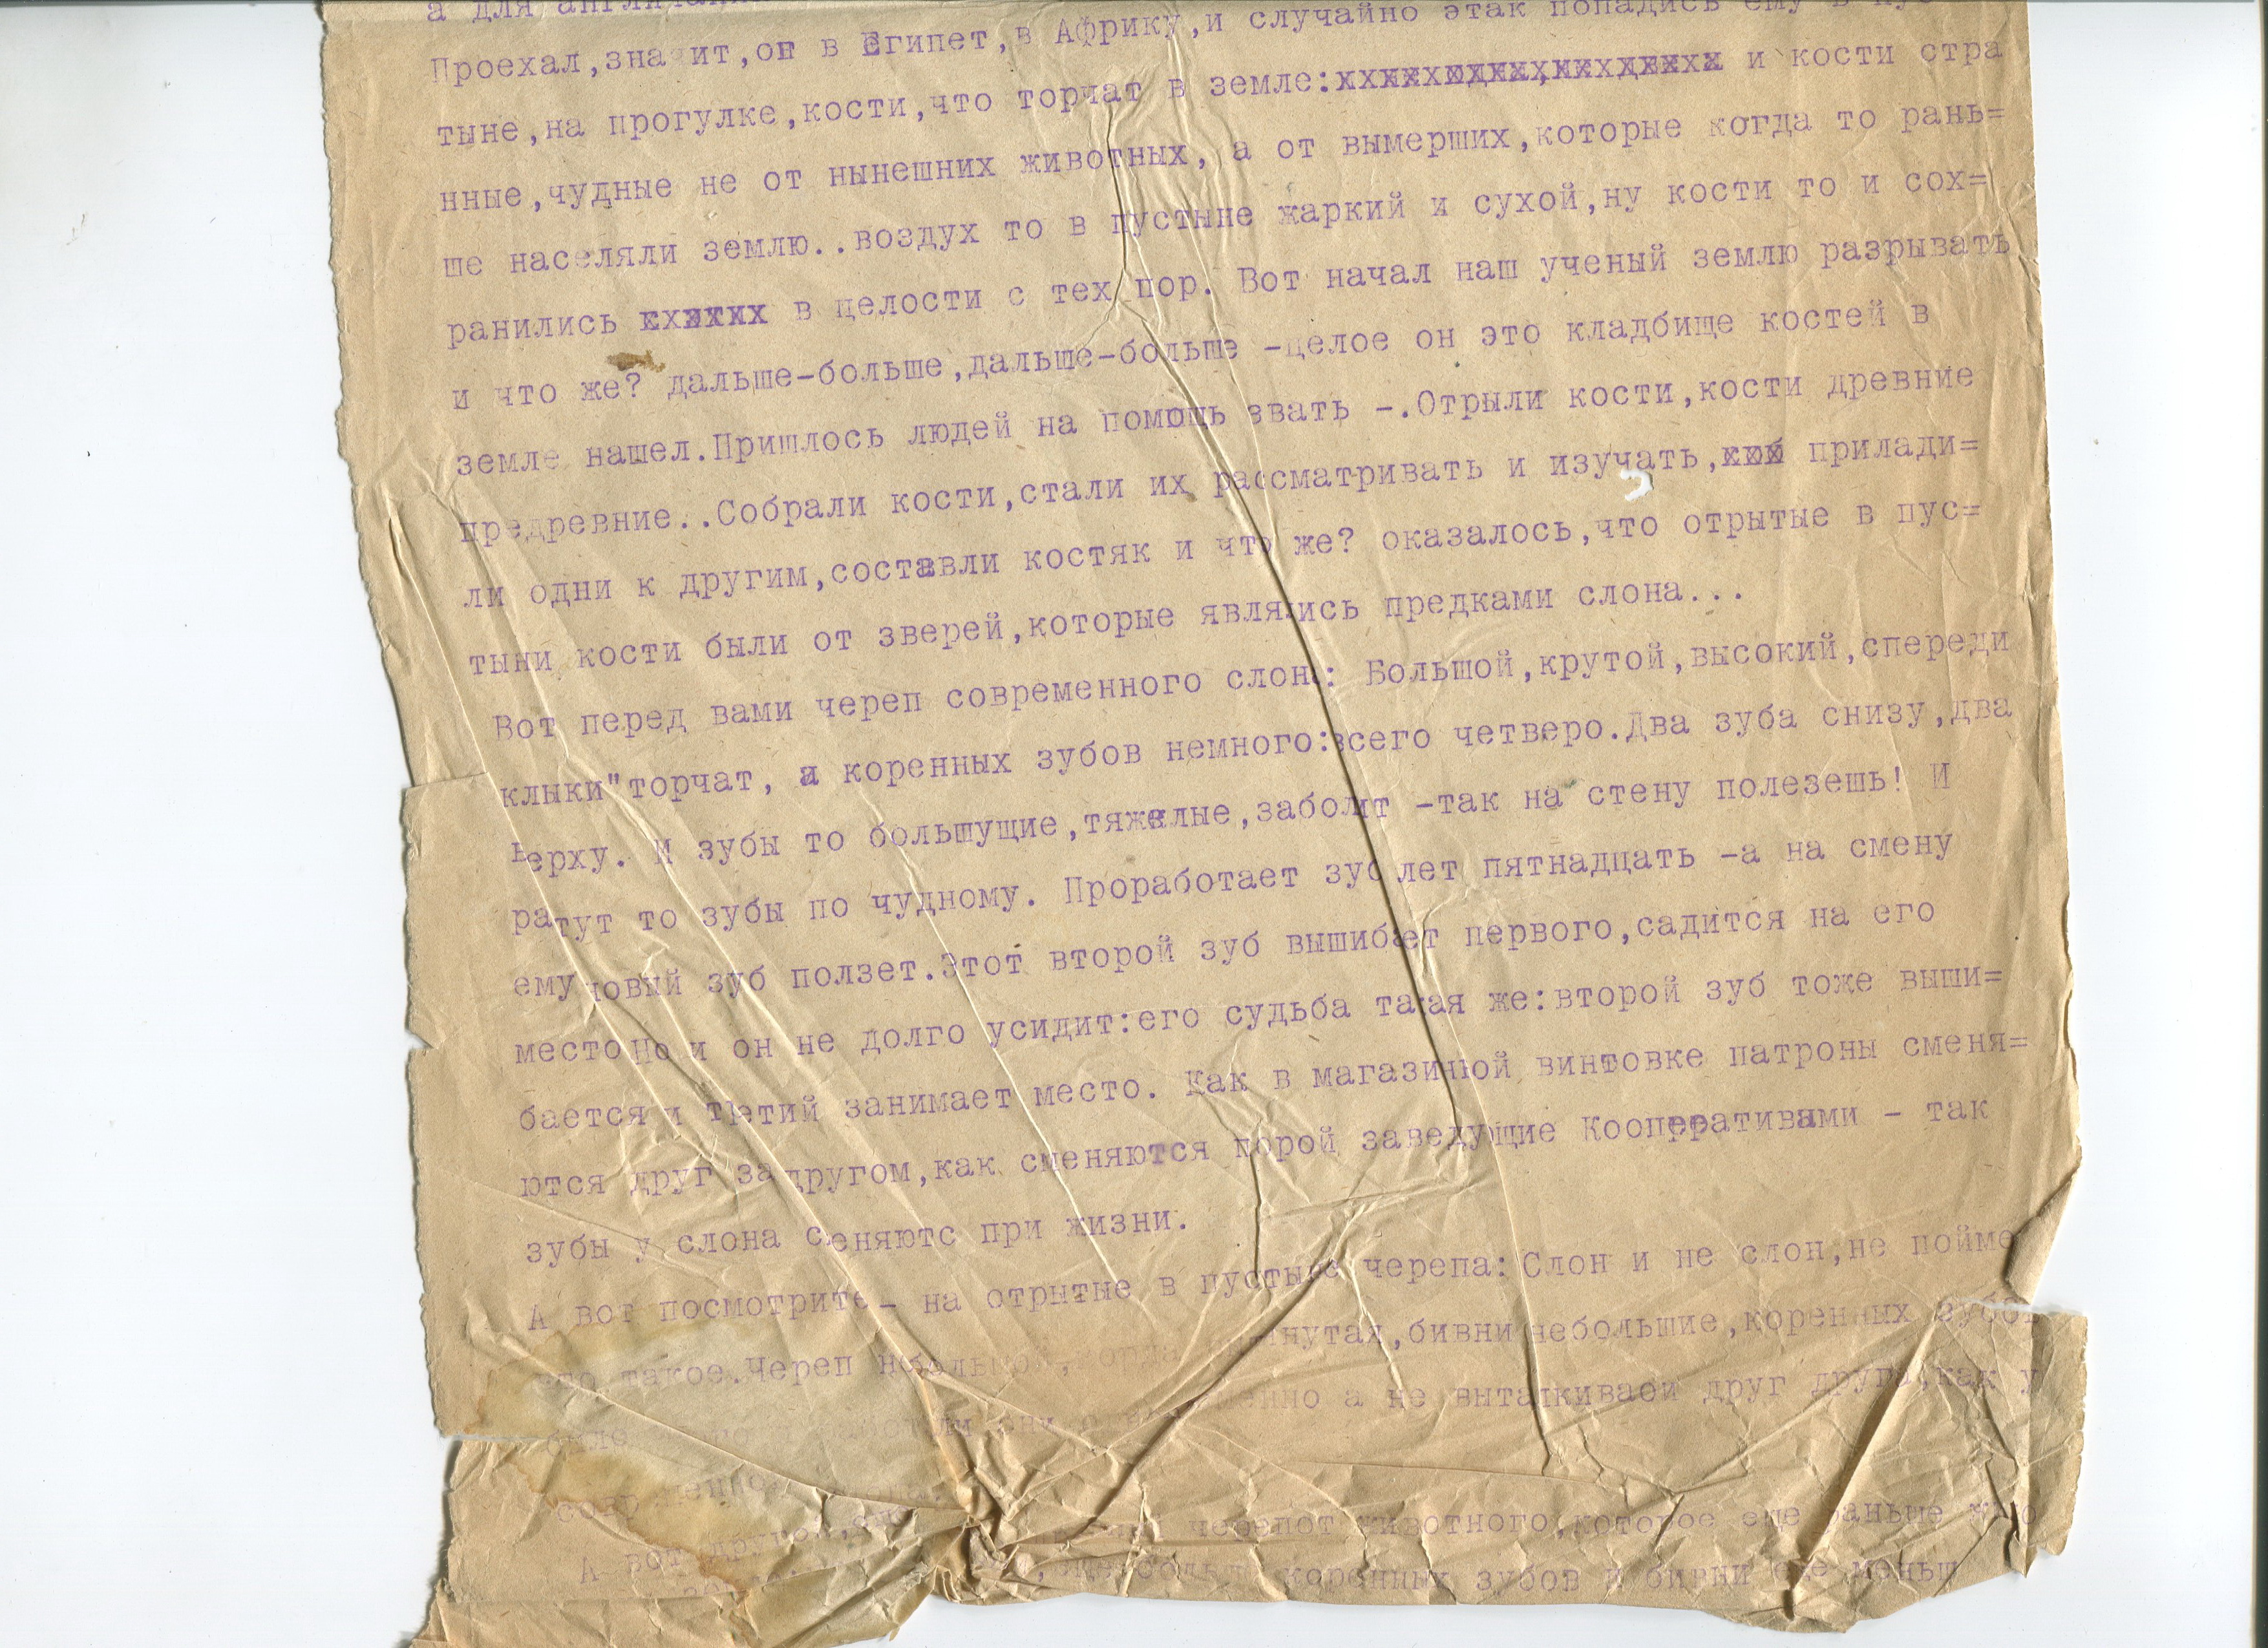 а для англичан
Проехал,значит,он в Египет,в Африку,и случайно этак попадись ему в пус
тыне,на прогулке,кости,что торчат в земле: и кости стра
нные,чудные не от нынешних животных, а от вымерших,которые когда то рань=
ше населяли землю..воздух то в пустыне жаркий и сухой,ну кости то и сох=
ранились в целости с тех пор. Вот начал наш ученый землю разрывать
и что же? дальше-больше,дальше-больше -целое он это кладбище костей в
земле нашел.Пришлось людей на помощь звать -.Отрыли кости,кости древние
предревние..Собрали кости,стали их рассматривать и изучать, прилади=
ли одни к другим,составли костяк и что же? оказалось,что отрытые в пус=
тыни кости были от зверей,которые являлись предками слона...
Вот перед вами череп современного слона: Большой,крутой,высокий,спереди
клыки"торчат, а коренных зубов немного:всего четверо.Два зуба снизу,два
верху. И зубы то большущие,тяжелые,заболит -так на стену полезешь! И
ратут то зубы по чудному. Проработает зуб лет пятнадцать -а на смену
ему новый зуб ползет.Этот второй зуб вышибает первого,садится на его
место Но и он не долго усидит:его судьба такая же:второй зуб тоже выши=
бается и третий занимает место. Как в магазинной винтовке патроны сменя=
ются друг за другом,как сменяются порой заведущие Кооперативами - так
зубы у слона сеняютс при жизни.
А вот посмотрите- на отрытые в пустыне черепа:Слон и не слон,не пойме
что такое.Череп небольшой, нутая,бивни небольшие,коренных зубов
они а не выталкиваои друг друга,как у
А вот другой, череп от животного,которое еще раньше жило
,еще больше коренных зубов и бивни еще меньш